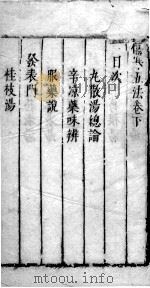 傷寒五法卷下
目次
九散湯總論
辛凉藥味辨
服藥說
發表門
桂枝湯
www.mtoou.info